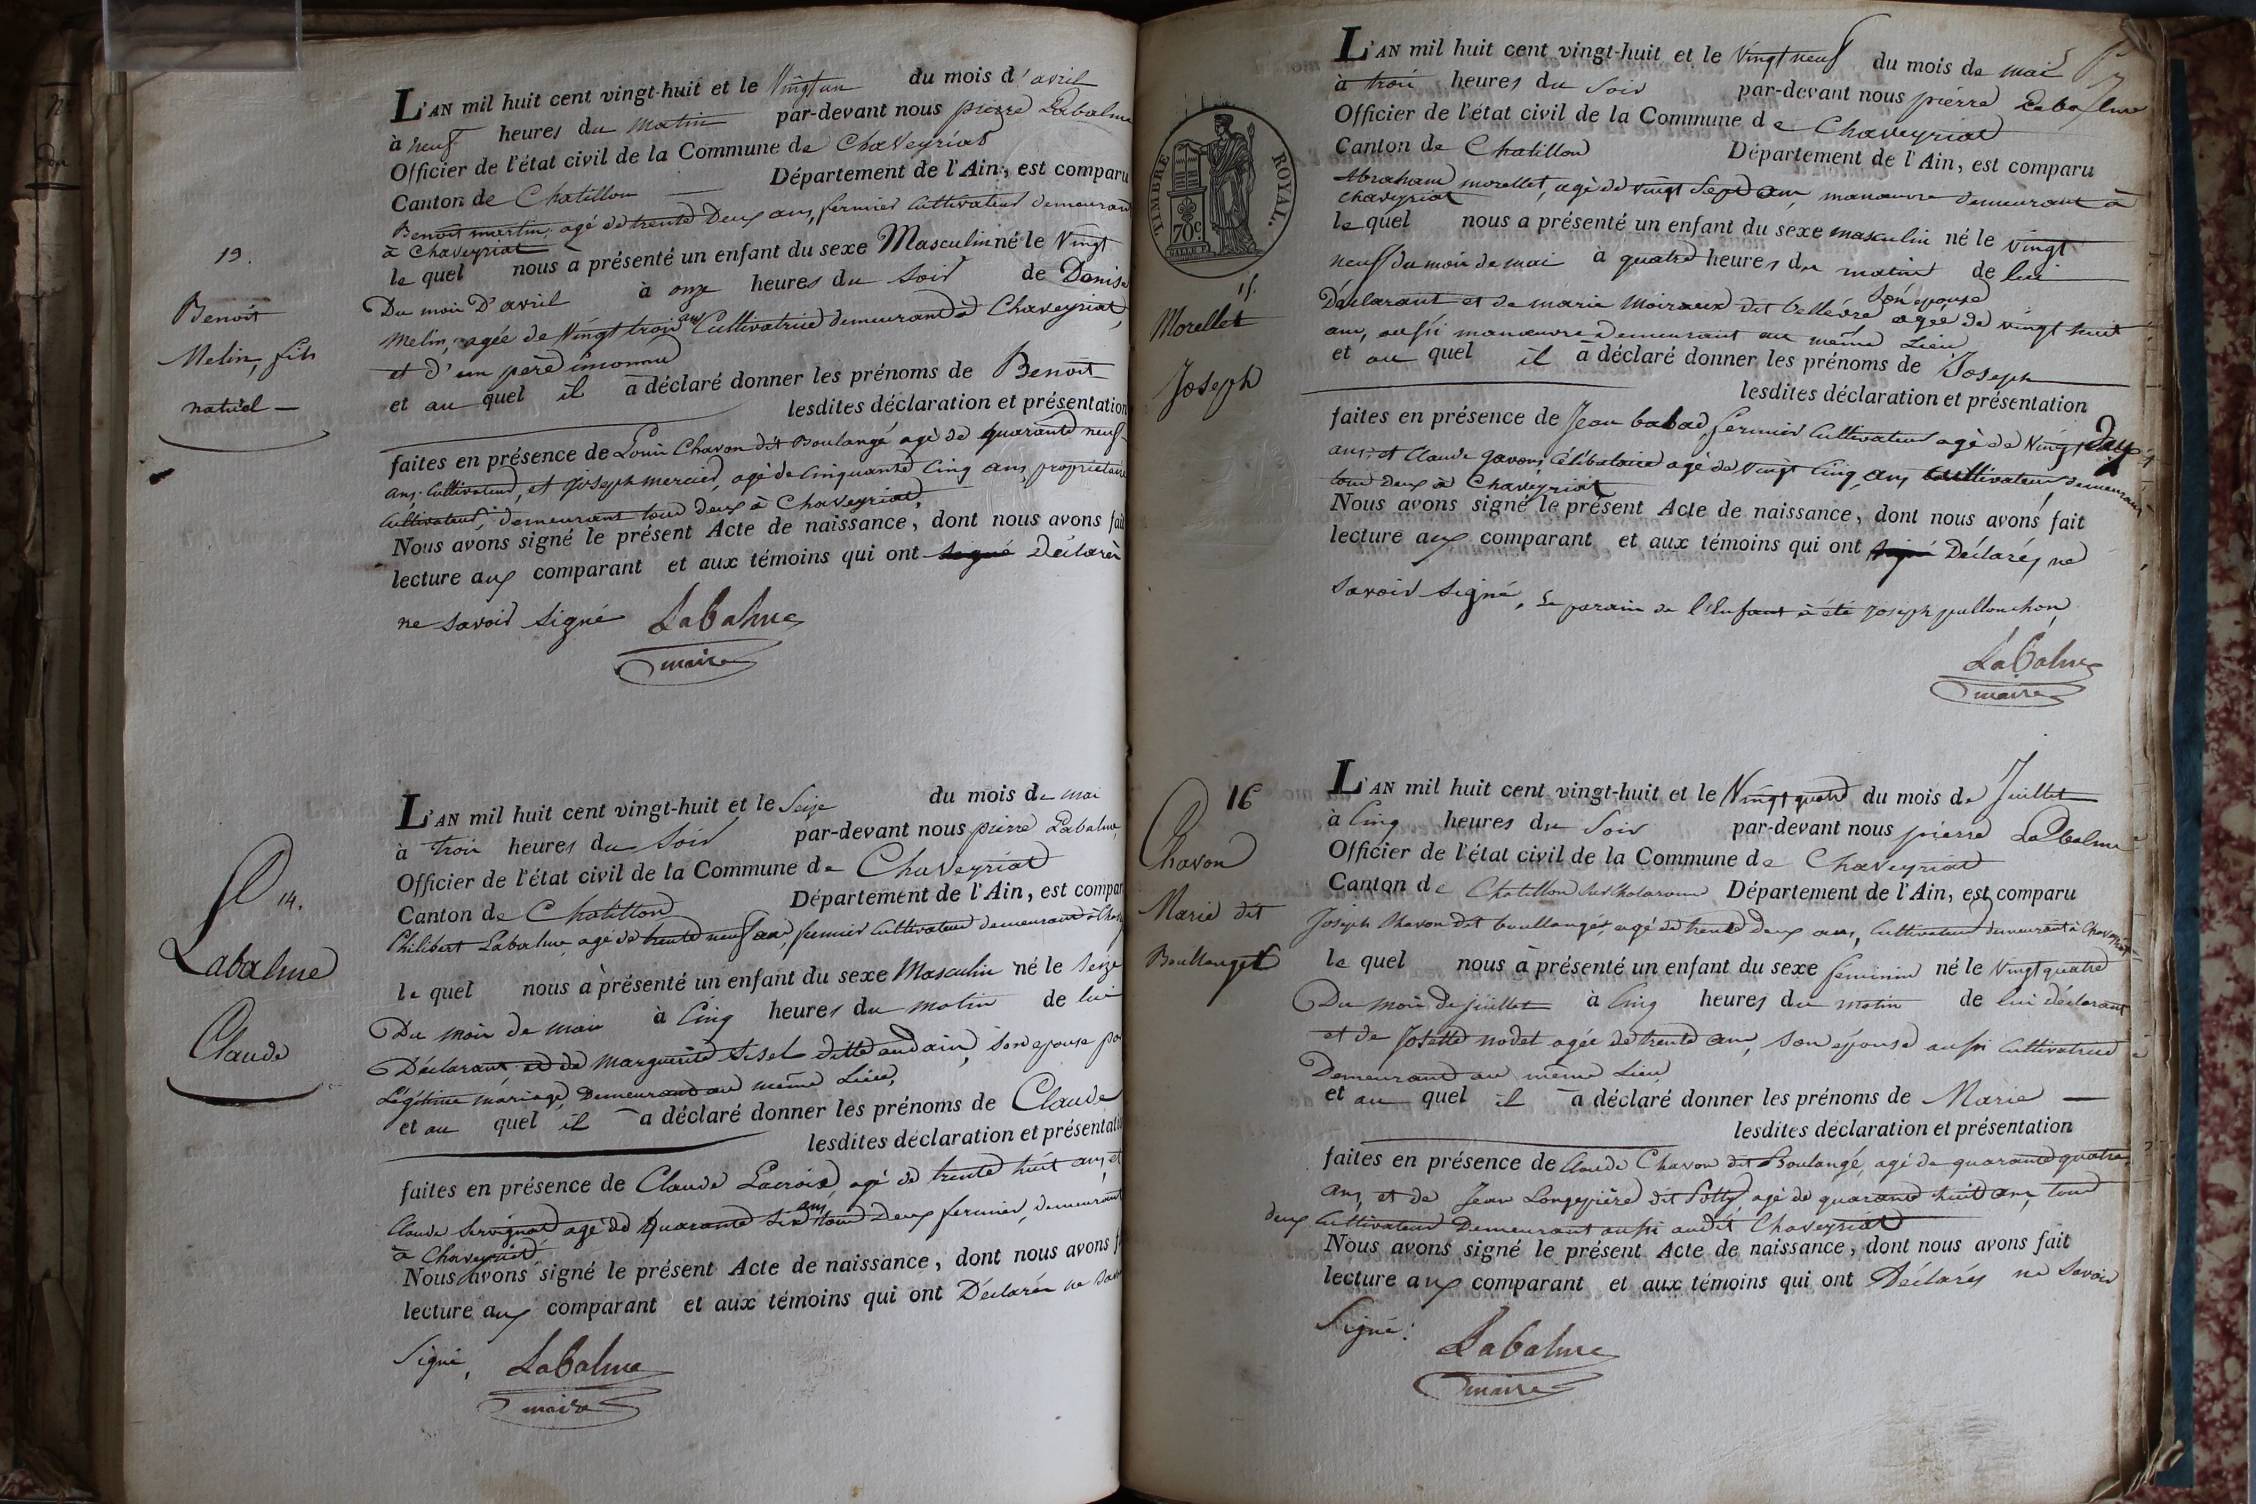 13.
Benoit
Melin, fils
naturel —
L'AN mil huit cent vingt-huit et le Vingt un du mois d'avril
à neuf heures du matin par-devant nous pierre Labalme
Officier de l'état civil de la Commune de Chaveyriat
Canton de Chatillon — Département de l'Ain, est comparu
Benoit martin, agé de trente Deux ans, fermier Cultivateur demeurant
à Chaveyriat
le quel nous a présenté un enfant du sexe Masculin né le Vingt
Du moi D'avril à onze heures du Soir de Denise
Melin, agée de Vingt trois ans Cultivatrice demeurand à Chaveyriat,
et d'un père inconnu
et au quel il a déclaré donner les prénoms de Benoit
lesdites déclaration et présentation
faites en présence de Louis Chavon dit Boulangé agé de quarante neuf
ans Cultivateur, et Joseph mercier, agé de Cinquante Cinq ans, propriétaire
Cultivateur, demeurant tous deux à Chaveyriat,
Nous avons signé le présent Acte de naissance, dont nous avons fait
lecture aux comparant et aux témoins qui ont signé Déclarér
ne savoir signé Labalme
maire
14.
Labalme
Claude
L'AN mil huit cent vingt-huit et le Seize du mois de mai
à trois heures du Soir par-devant nous pierre Labalme
Officier de l'état civil de la Commune de Chaveyriat
Canton de Chatillon Département de l'Ain, est compar
Philibert Labalme agé de trente neuf ans, fermier Cultivateur demeurand à
le quel nous à présenté un enfant du sexe Masculin né le Seize
Du moi de mai à Cinq heures du matin de lui
Déclarant, et de Marguerite Sisel ditte audain, son epouse
Légitime mariage, Demeurand au même Lieu,
et au quel il a déclaré donner les prénoms de Claude
lesdites déclaration et présentatio
faites en présence de Claude Lacroix, agé de trente huit ans, et
Claude Servignat agé de Quarante Six ans tous Deux fermier, demeurant
à Chaveyriat
Nous avons signé le présent Acte de naissance, dont nous avons f
lecture aux comparant et aux témoins qui ont Déclarér ne
Signé, Labalme
maire
TIMBRE ROYAL.
70c
15.
Morellet
Joseph
L'AN mil huit cent vingt-huit et le Vingt neuf du mois de mai
à trois heures du Soir par-devant nous pierre Labalme
Officier de l'état civil de la Commune de Chaveyriat
Canton de Chatillon Département de l'Ain, est comparu
Abraham morellet, agé de vingt Sept ans, manœuvre demeurant à
Chaveyriat
le quel nous a présenté un enfant du sexe masculin né le vingt
neuf du moi de mai à quatre heures du matin de lui
Déclarant et de marie Moiraux dit Bellevre Son epouse agée de vingt huit
ans, aussi manœuvre Demeurant au même Lieu
et au quel il a déclaré donner les prénoms de Joseph
lesdites déclaration et présentation
faites en présence de Jean babad, fermier Cultivateur agé de Vingt
ans et Claude gavon, Célibataire agé de Vingt Cinq ans Cultivateur, Demeurant
tous deux à Chaveyriat
Nous avons signé le présent Acte de naissance, dont nous avons fait
lecture aux comparant et aux témoins qui ont signé Déclarés ne
savoir signé. Le parain de l'Enfant à été Joseph pallonchon,
Labalme
maire
16
Chavon
Marie dit
Boullanget
L'AN mil huit cent vingt-huit et le Vingt quatre du mois de Juillet
à Cinq heures du Soir par-devant nous pierre Labalme
Officier de l'état civil de la Commune de Chaveyriat
Canton de Chatillon Département de l'Ain, est comparu
Joseph Chavon dit boullanget, agé de trente Deux ans, Cultivateur demeurant à Chaveyriat
le quel nous à présenté un enfant du sexe feminin né le Vingt quatre
Du moi de Juillet à Cinq heures du matin de lui déclarant
et de Josette nodet agée de trente ans, son épouse aussi Cultivatrice
Demeurant au même Lieu
et au quel il a déclaré donner les prénoms de Marie —
lesdites déclaration et présentation
faites en présence de Claude Chavon dit Boulangé, agé de quarante quatre
ans, et de Jean Longepierre dit Potty agé de quarante huit ans, tous
deux Cultivateur Demeurant aussi audit Chaveyriat
Nous avons signé le présent Acte de naissance, dont nous avons fait
lecture aux comparant et aux témoins qui ont Déclarés ne Savoir
Signé: Labalme
maire